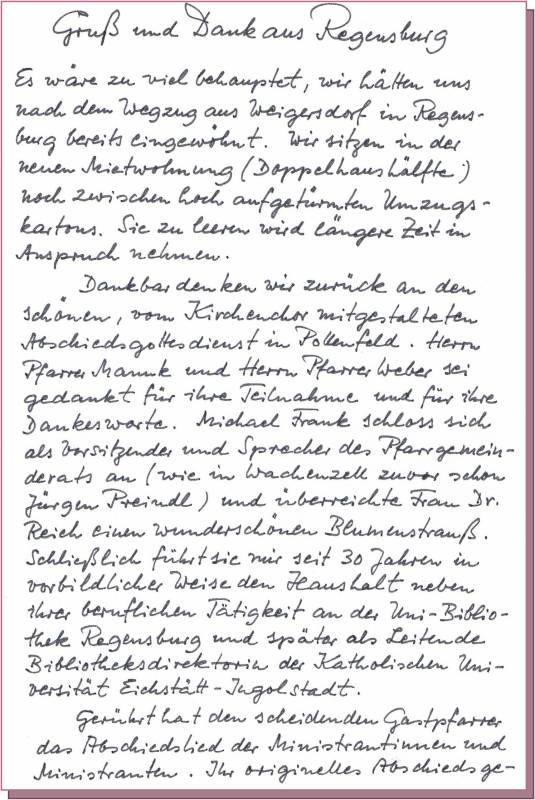 Gruß und Dank aus Regensburg
Es wäre zu viel behauptet, wir hätten uns
nach dem Wegzug aus Weigersdorf in Regens-
burg bereits eingewöhnt. Wir sitzen in der
neuen Mietwohnung (Doppelhaushälfte)
noch zwischen hoch aufgetürmten Umzugs-
kartons. Sie zu leeren wird längere Zeit in
Anspruch nehmen.
Dankbar denken wir zurück an den
schönen, vom Kirchenchor mitgestalteten
Abschiedsgottesdienst in Pollenfeld. Herrn
Pfarrer Mannk und Herrn Pfarrer Weber sei
gedankt für ihre Teilnahme und für ihre
Dankesworte. Michael Frank schloss sich
als Vorsitzender und Sprecher des Pfarrgemein-
derats an (wie in Wachenzell zuvor schon
Jürgen Preindl) und überreichte Frau Dr.
Reich einen wunderschönen Blumenstrauß.
Schließlich führt sie mir seit 30 Jahren in
vorbildlicher Weise den Haushalt neben
ihrer beruflichen Tätigkeit an der Uni-Biblio-
thek Regensburg und später als Leitende
Bibliotheksdirektorin der Katholischen Uni-
versität Eichstätt-Ingolstadt.
Gerührt hat den scheidenden Gastpfarrer
das Abschiedslied der Ministrantinnen und
Ministranten. Ihr originelles Abschiedsge-